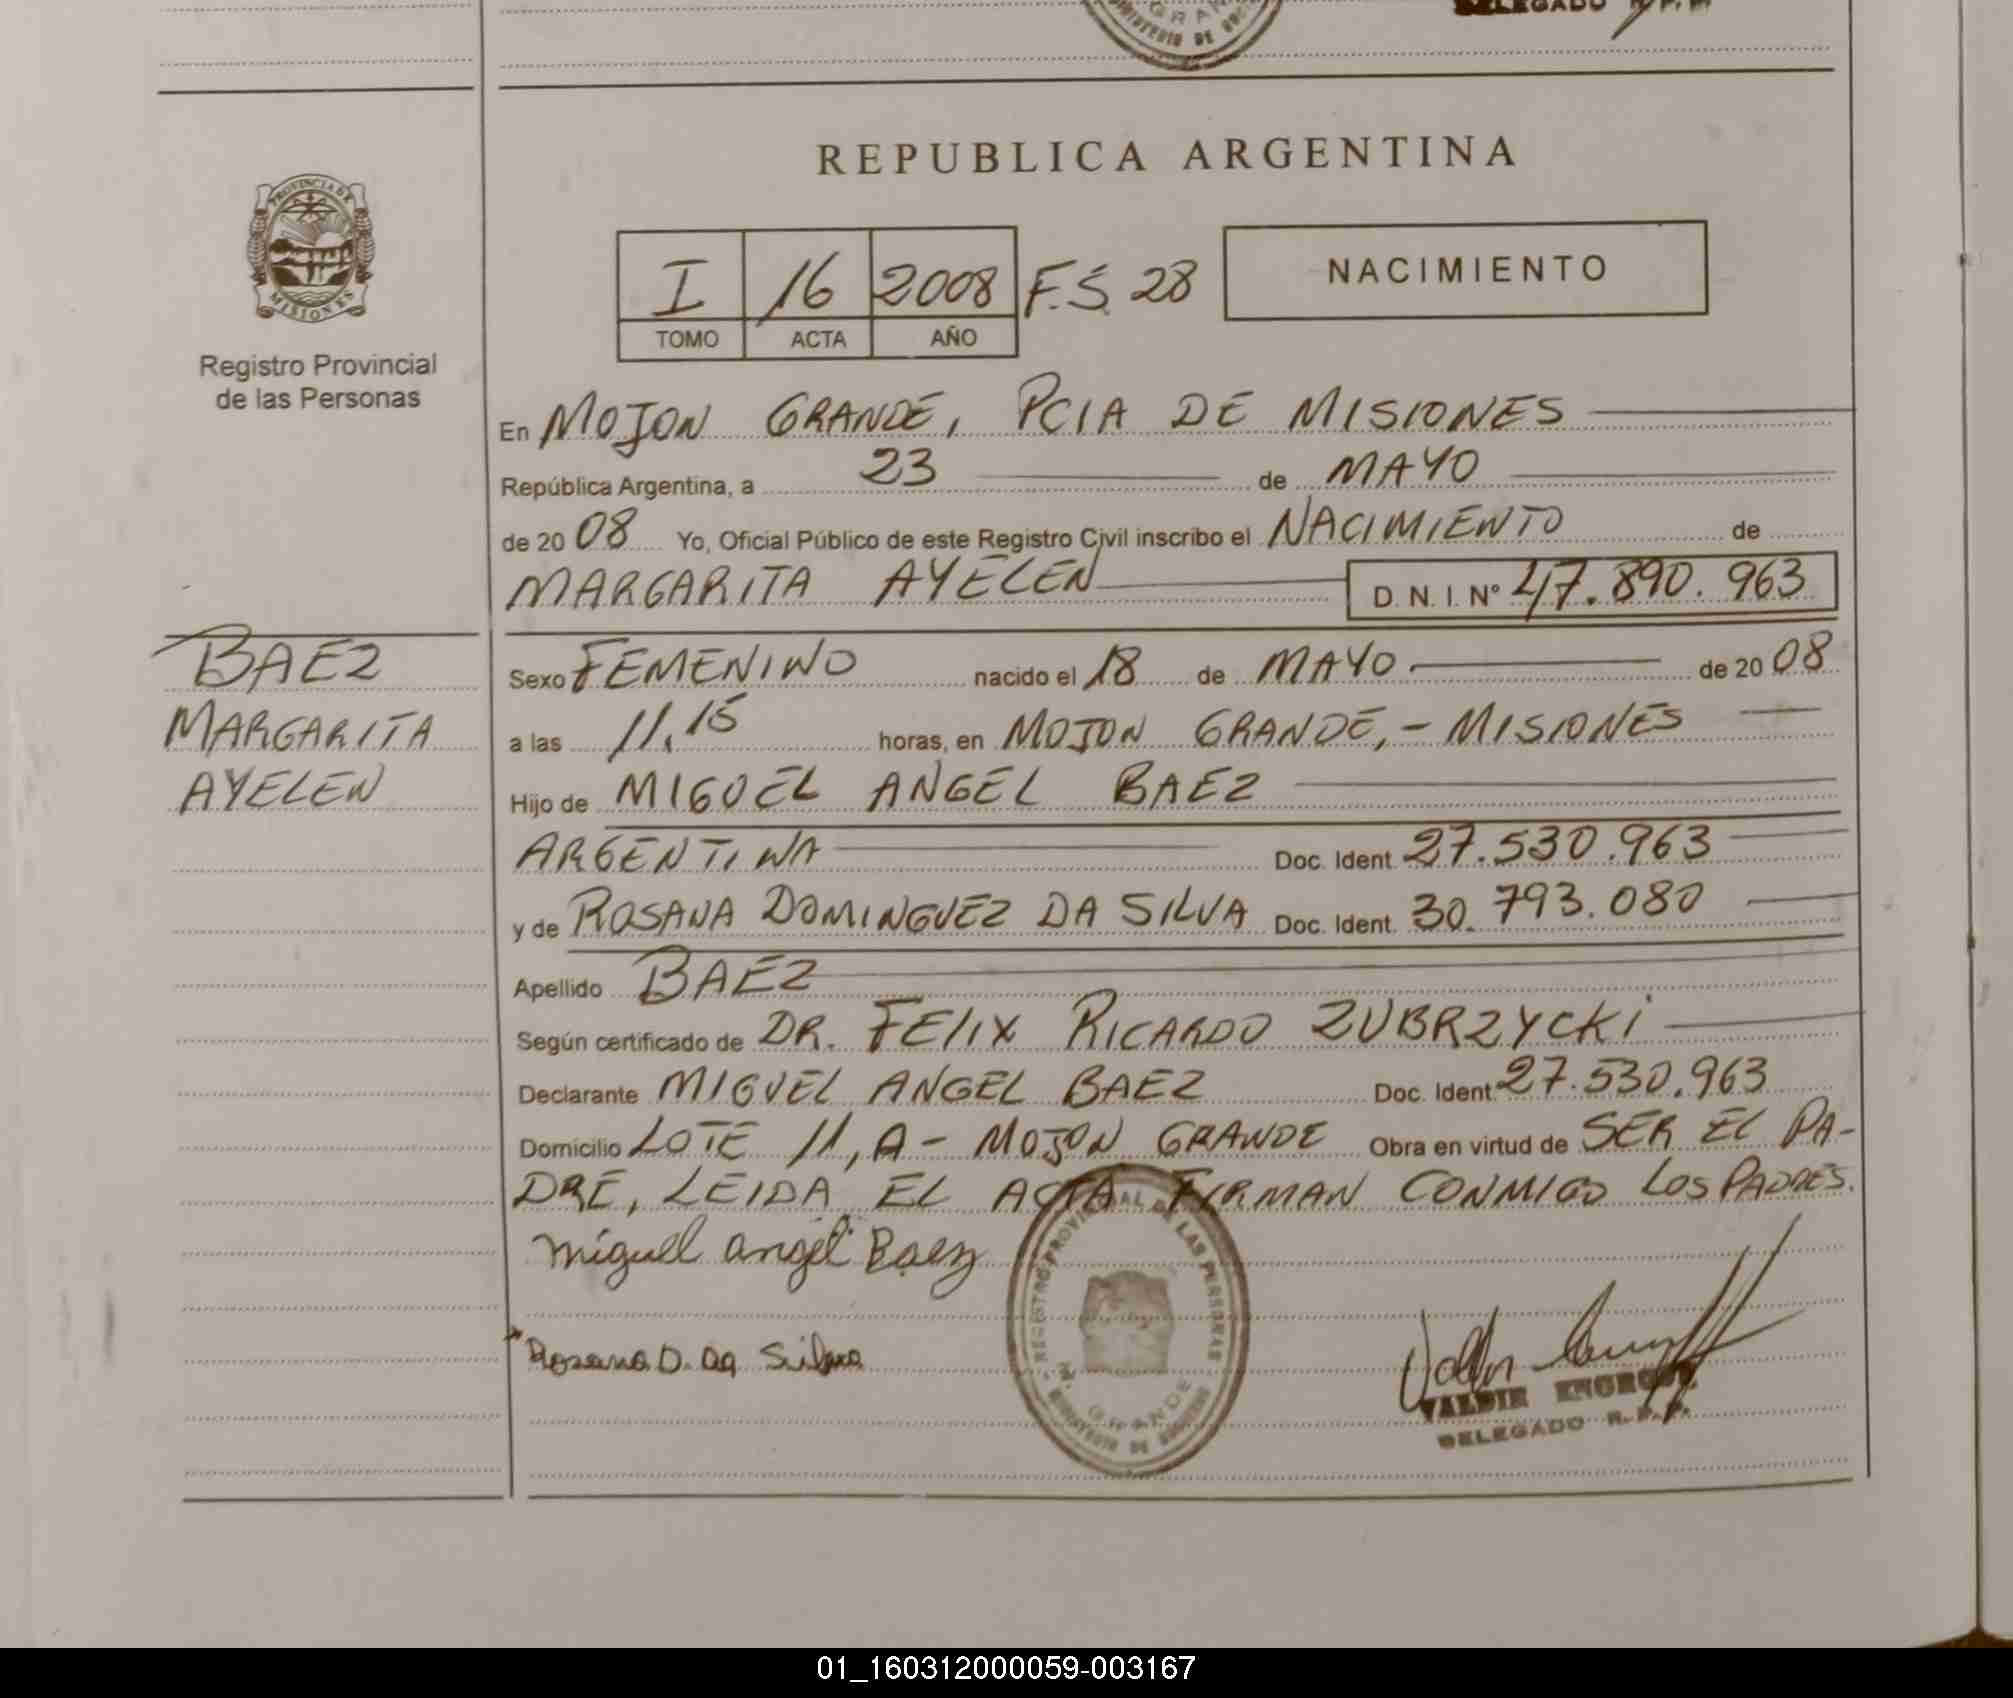 GRAN
MINISTERIO DE GOB
DELEGADO R.P.P.
REPUBLICA ARGENTINA
PROVINCIA DE
MISIONES
Registro Provincial
de las Personas
I 16 2008 F.S. 28
TOMO ACTA AÑO
NACIMIENTO
En MOJON GRANDE, PCIA DE MISIONES
República Argentina, a 23 de MAYO
de 20 08 Yo, Oficial Público de este Registro Civil inscribo el NACIMIENTO de
MARGARITA AYELEN D. N. I. Nº 47.890.963
BAEZ
MARGARITA
AYELEN
Sexo FEMENINO nacido el 18 de MAYO de 20 08
a las 11,15 horas, en MOJON GRANDE,- MISIONES
Hijo de MIGUEL ANGEL BAEZ
ARGENTINA Doc. Ident. 27.530.963
y de ROSANA DOMINGUEZ DA SILVA Doc. Ident. 30.793.080
Apellido BAEZ
Según certificado de DR. FELIX RICARDO ZUBRZYCKI
Declarante MIGUEL ANGEL BAEZ Doc. Ident. 27.530.963
Domicilio LOTE 11,A - MOJON GRANDE Obra en virtud de SER EL PA-
DRE, LEIDA EL ACTA FIRMAN CONMIGO LOS PADRES.
Miguel angel Baez
Rosana D. da Silva
REGISTRO PROVINCIAL DE LAS PERSONAS
M. GRANDE
MINISTERIO DE GOBIERNO
VALDIR
DELEGADO R.P.P.
01_160312000059-003167